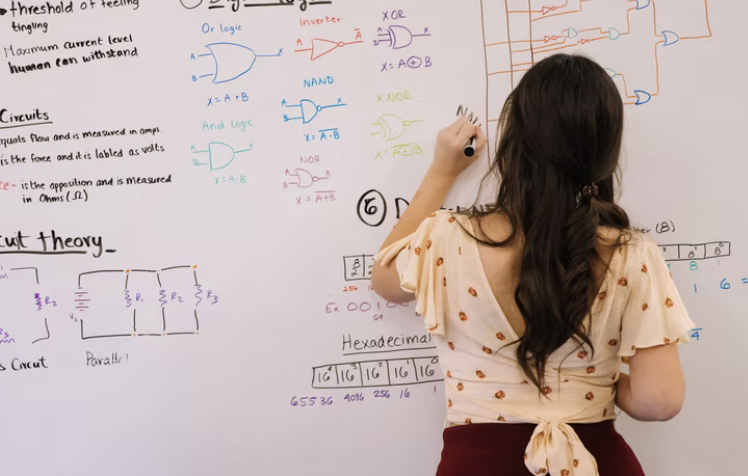 threshold of feeling
tingling
Maximum current level
human can withstand
Circuits
equals flow and is measured in amps
is the force and it is labled as volts
- is the opposition and is measured
in Ohms (Ω)
cuit theory
R2
R3
s Circut
Vs
R1
R2
R3
Parallel
Or logic
A
B
X
X = A + B
And logic
A
B
X = A·B
Inverter
A
A̅
NAND
A
B
X
X = A̅·̅B̅
NOR
A
B
X = A̅+̅B̅
XOR
A
B
X
X = A ⊕ B
X NOR
X = A̅⊕̅B̅
6 D
256
64
Ex 001
Hexadecimal
16⁴ 16³ 16² 16¹ 16⁰
65536 4096 256 16 1
(8)
8¹ 8⁰
8 1
1 6 =
4